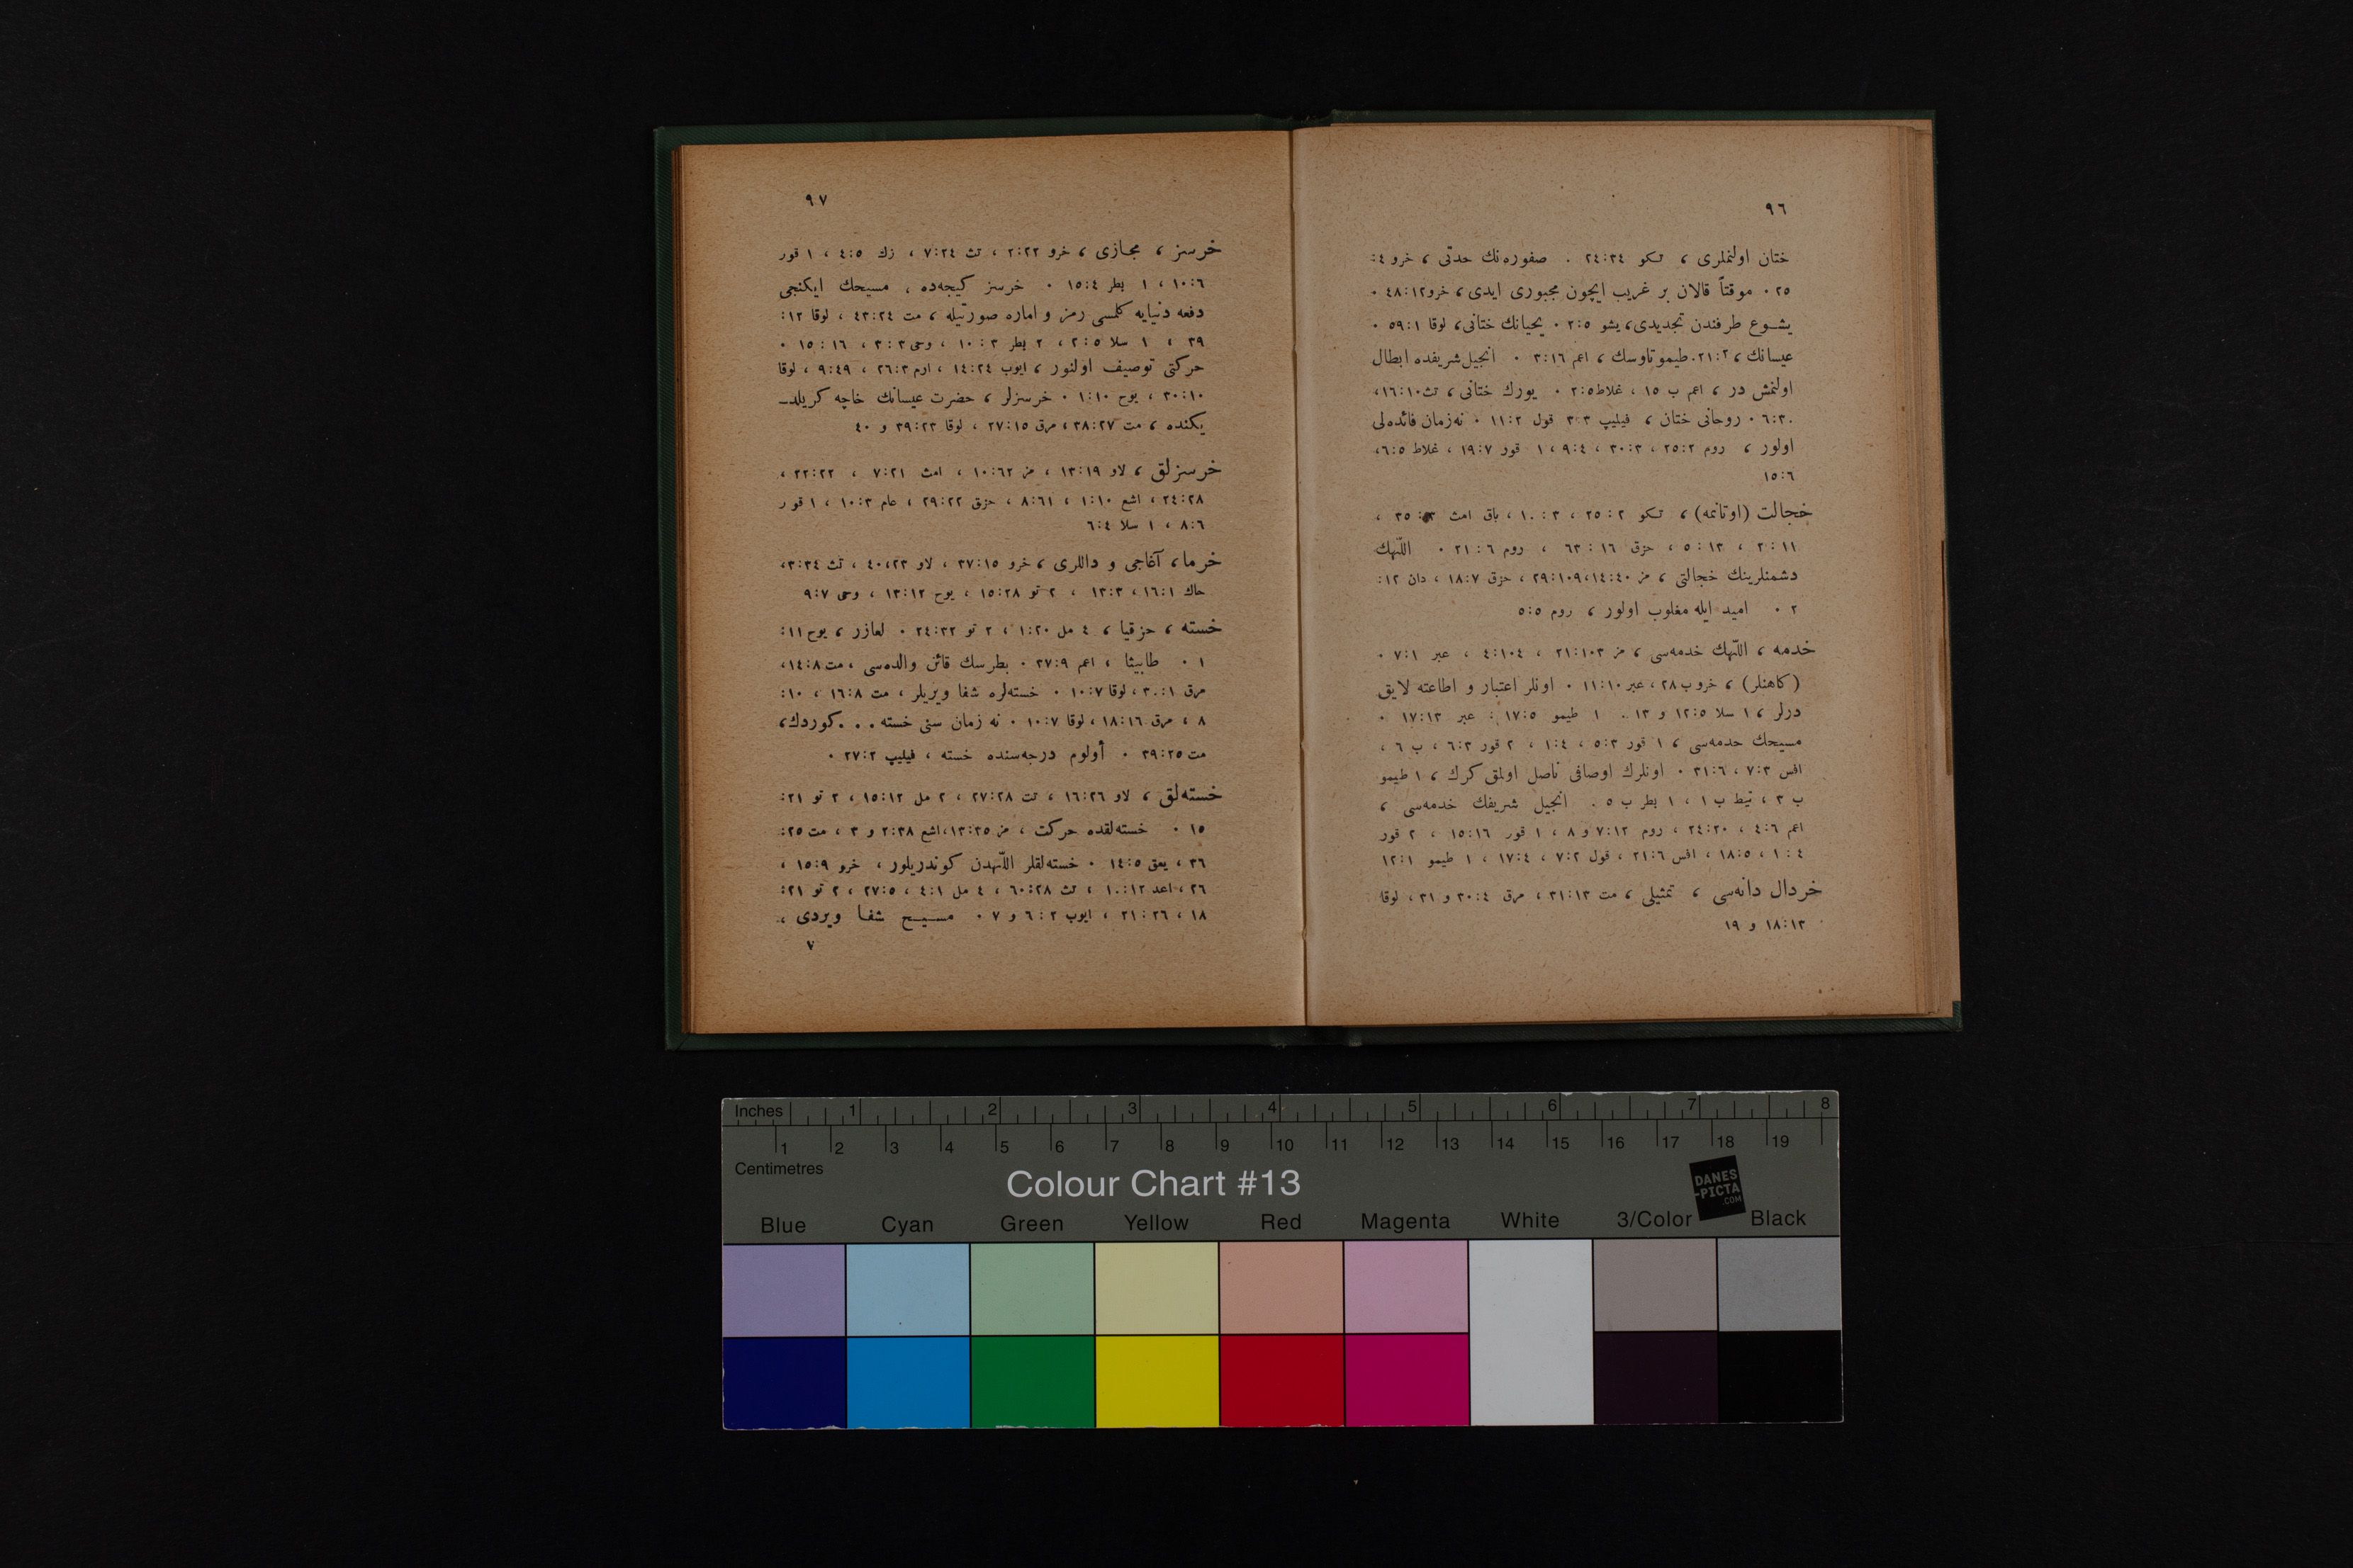 ٩٦
ختان اولنملری ، تكو ٢٤:٣٤ . صفوره‌نك حدتی ، خرو ٤:
٢٥ ٠ موقتاً قالان بر غریب ایچون مجبوری ایدی ، خرو ٤٨:١٢ ٠
یشــوع طرفندن تجدیدی ، یشو ٢:٥ ٠ یحیانك ختانی ، لوقا ٥٩:١ ٠
عیسانك ، ٢١:٢ . طیموتاوسك ، اعم ٣:١٦ ٠ انجیل شریفده ابطال
اولنمش در ، اعم ب ١٥ ، غلاط ٢:٥ ٠ یورك ختانی ، تث ١٦:١٠ ،
٦:٣٠ ٠ روحانی ختان ، فیلیپ ٣:٣ قول ١١:٢ ٠ نه‌زمان فائده‌لی
اولور ، روم ٢٥:٢ ، ٣٠:٣ ، ٩:٤ ، ١ قور ١٩:٧ ، غلاط ٦:٥ ،
١٥:٦
خجالت (اوتانمه) ، تكو ٢٥:٢ ، ١٠:٣ ، باق امث ٣٥:٣ ،
٢:١١ ، ٥:١٣ ، حزق ٦٣:١٦ ، روم ٢١:٦ ٠ اللّٰهك
دشمنلرینك خجالتی ، مز ١٤:٤٠ ، ٢٩:١٠٩ ، حزق ١٨:٧ ، دان ١٢:
٢ ٠ امید ایله مغلوب اولور ، روم ٥:٥
خدمه ، اللّٰهك خدمه‌سی ، مز ٢١:١٠٣ ، ٤:١٠٤ ، عبر ٧:١ ٠
(كاهنلر) ، خروب ٢٨ ، عبر ١١:١٠ ٠ اونلر اعتبار و اطاعته لایق
درلر ، ١ سلا ١٢:٥ و ١٣ . ١ طیمو ١٧:٥ : عبر ١٧:١٣ ٠
مسیحك خدمه‌سی ، ١ قور ٥:٣ ، ١:٤ ، ٢ قور ٦:٣ ، ب ٦ ،
افس ٧:٣ ، ٢١:٦ ٠ اونلرك اوصافی ناصل اولمق كرك ، ١ طیمو
ب ٣ ، تیط ب ١ ، ١ بطر ب ٥ . انجیل شریفك خدمه‌سی ،
اعم ٤:٦ ، ٢٤:٢٠ ، روم ٧:١٢ و ٨ ، ١ قور ١٥:١٦ ، ٢ قور
١:٤ ، ١٨:٥ ، افس ٢١:٦ ، قول ٧:٢ ، ١٧:٤ ، ١ طیمو ١٢:١
خردال دانه‌سی ، تمثیلی ، مت ٣١:١٣ ، مرق ٣٠:٤ و ٣١ ، لوقا
١٨:١٣ و ١٩
٩٧
خرسز ، مجازی ، خرو ٢:٢٢ ، تث ٧:٢٤ ، زك ٤:٥ ، ١ قور
١٠:٦ ، ١ بطر ١٥:٤ ٠ خرسز كیجه‌ده ، مسیحك ایكنجی
دفعه دنیایه كلمسی رمز و اماره صورتیله ، مت ٤٣:٢٤ ، لوقا ١٢:
٣٩ ، ١ سلا ٢:٥ ، ٢ بطر ١٠:٣ ، وحی ٣:٣ ، ١٥:١٦ ٠
حركتی توصیف اولنور ، ایوب ١٤:٢٤ ، ارم ٢٦:٢ ، ٩:٤٩ ، لوقا
٣٠:١٠ ، یوح ١:١٠ ٠ خرسزلر ، حضرت عیسانك خاچه كریلد‌ـ
یكنده ، مت ٣٨:٢٧ ، مرق ٢٧:١٥ ، لوقا ٣٩:٢٣ و ٤٠
خرسزلق ، لاو ١٣:١٩ ، مز ١٠:٦٢ ، امث ٧:٢١ ، ٢٢:٢٢ ،
٢٤:٢٨ ، اشع ١:١٠ ، ٨:٦١ ، حزق ٢٩:٢٢ ، عام ١٠:٣ ، ١ قور
٨:٦ ، ١ سلا ٦:٤
خرما ، آغاجی و داللری ، خرو ٢٧:١٥ ، لاو ٤٠،٢٣ ، تث ٣:٣٤ ،
حاك ١٦:١ ، ١٣:٣ ، ٢ تو ١٥:٢٨ ، یوح ١٣:١٢ ، وحی ٩:٧
خسته ، حزقیا ، ٤ مل ١:٢٠ ، ٢ تو ٢٤:٣٢ ٠ لعازر ، یوح ١١:
١ ٠ طابیثا ، اعم ٣٧:٩ ٠ بطرسك قائن والده‌سی ، مت ١٤:٨ ،
مرق ٣٠:١ ، لوقا ١٠:٧ ٠ خسته‌لره شفا ویریلر ، مت ١٦:٨ ، ١٠:
٨ ، مرق ١٨:١٦ ، لوقا ١٠:٧ ٠ نه زمان سنی خسته . . . كوردك ،
مت ٣٩:٢٥ ٠ أولوم درجه‌سنده خسته ، فیلیپ ٢٧:٢ ٠
خسته‌لق ، لاو ١٦:٢٦ ، تث ٢٧:٢٨ ، ٢ مل ١٥:١٢ ، ٢ تو ٢١:
١٥ ٠ خسته‌لقده حركت ، مز ١٣:٣٥ ، اشع ٢:٣٨ و ٣ ، مت ٢٥:
٣٦ ، یعق ١٤:٥ ٠ خسته‌لقلر اللّٰهدن كوندریلور ، خرو ١٥:٩ ،
٢٦ ، اعد ١٠:١٢ ، تث ٦٠:٢٨ ، ٤ مل ٤:١ ، ٢٧:٥ ، ٢ تو ٢١:
١٨ ، ٢١:٢٦ ، ایوب ٦:٢ و ٧ ٠ مســیــح شفـا ویردی ،
٧
Inches 1 2 3 4 5 6 7 8
1 2 3 4 5 6 7 8 9 10 11 12 13 14 15 16 17 18 19
Centimetres
Colour Chart #13
DANES
-PICTA
.COM
Blue Cyan Green Yellow Red Magenta White 3/Color Black